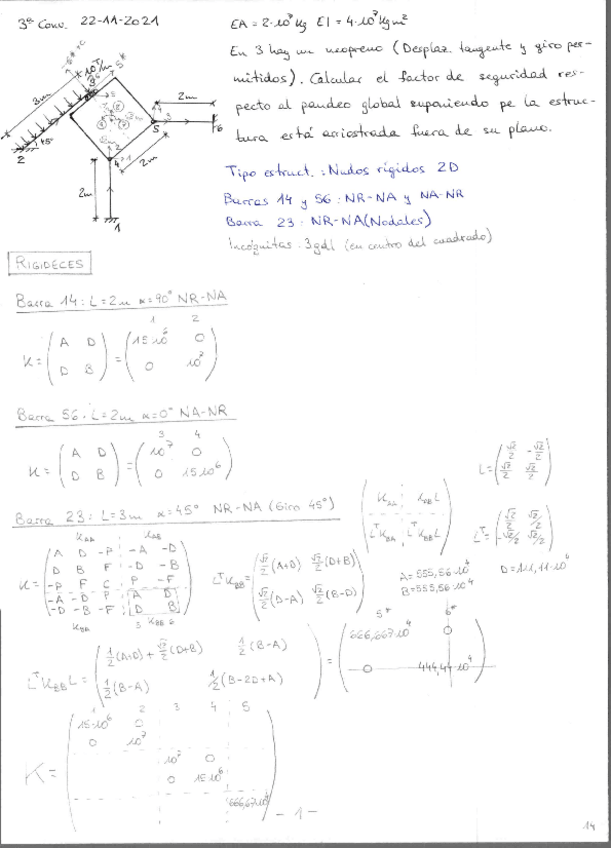 3ª Conv. 22-11-2021
EA = 2·10⁷ Kg EI = 4·10⁷ Kgm²
En 3 hay un neopreno (Desplaz. tangente y giro per-
mitidos). Calcular el factor de seguridad res-
pecto al pandeo global suponiendo pe la estruc-
tura está arriostrada fuera de su plano.
Tipo estruct.: Nudos rígidos 2D
Barras 14 y 56: NR-NA y NA-NR
Barra 23: NR-NA (Nodales)
Incógnitas: 3 gdl (en centro del cuadrado)
3m
10 T/m
45°
2
2m
2m
2m
1
3
4
5
6
RIGIDECES
Barra 14: L=2m α=90° NR-NA
1 2
K = (A D; D B) = (15·10⁶ 0; 0 10⁷)
Barra 56: L=2m α=0° NA-NR
3 4
K = (A D; D B) = (10⁷ 0; 0 15·10⁶)
L = (√2/2 -√2/2; √2/2 √2/2)
Barra 23: L=3m α=45° NR-NA (Giro 45°)
(K_AA K_AB L; LᵀK_BA LᵀK_BB L)
Lᵀ = (√2/2 √2/2; -√2/2 √2/2)
K_AA K_AB
K = (A D -P -A -D; D B F -D -B; -P F C P -F; -A -D P A D; -D -B -F D B)
K_BA 5 K_BB 6
LᵀK_BB = (√2/2(A+D) √2/2(D+B); √2/2(D-A) √2/2(B-D))
A = 555,56·10⁴
B = 555,56·10⁴
D = 111,11·10⁴
LᵀK_BB L = (1/2(A+D)+√2/2(D+B) 1/2(B-A); 1/2(B-A) 1/2(B-2D+A))
5* 6*
= (666,667·10⁴ 0; 0 444,44·10⁴)
1 2 3 4 5
K = (15·10⁶ 0; 0 10⁷; 10⁷ 0; 0 15·10⁶; 666,67·10⁴)
-1-
14